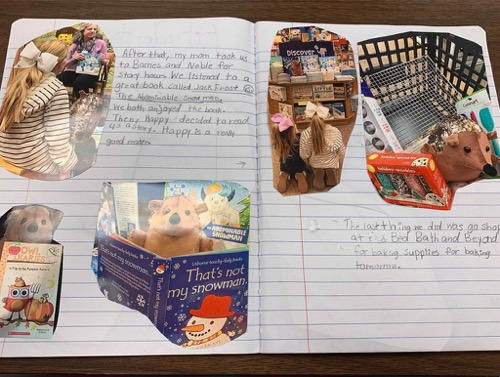 After that, my mom took us
to Barnes and Noble for
story hours We listened to a
great book called Jack Frost vs
The Abominable Snowman.
We both enjoyed the book.
Then, Happy decided to read
us a story. Happy is a really
good reader.
Discover
OWL DIARIES
ABOMINABLE
SNOWMAN
Usborne touchy-feely books
That's not
my snowman...
That's not my snowman...
The last thing we did was go shop
at Bed Bath and Beyond
for baking supplies for baking
tomorrow.